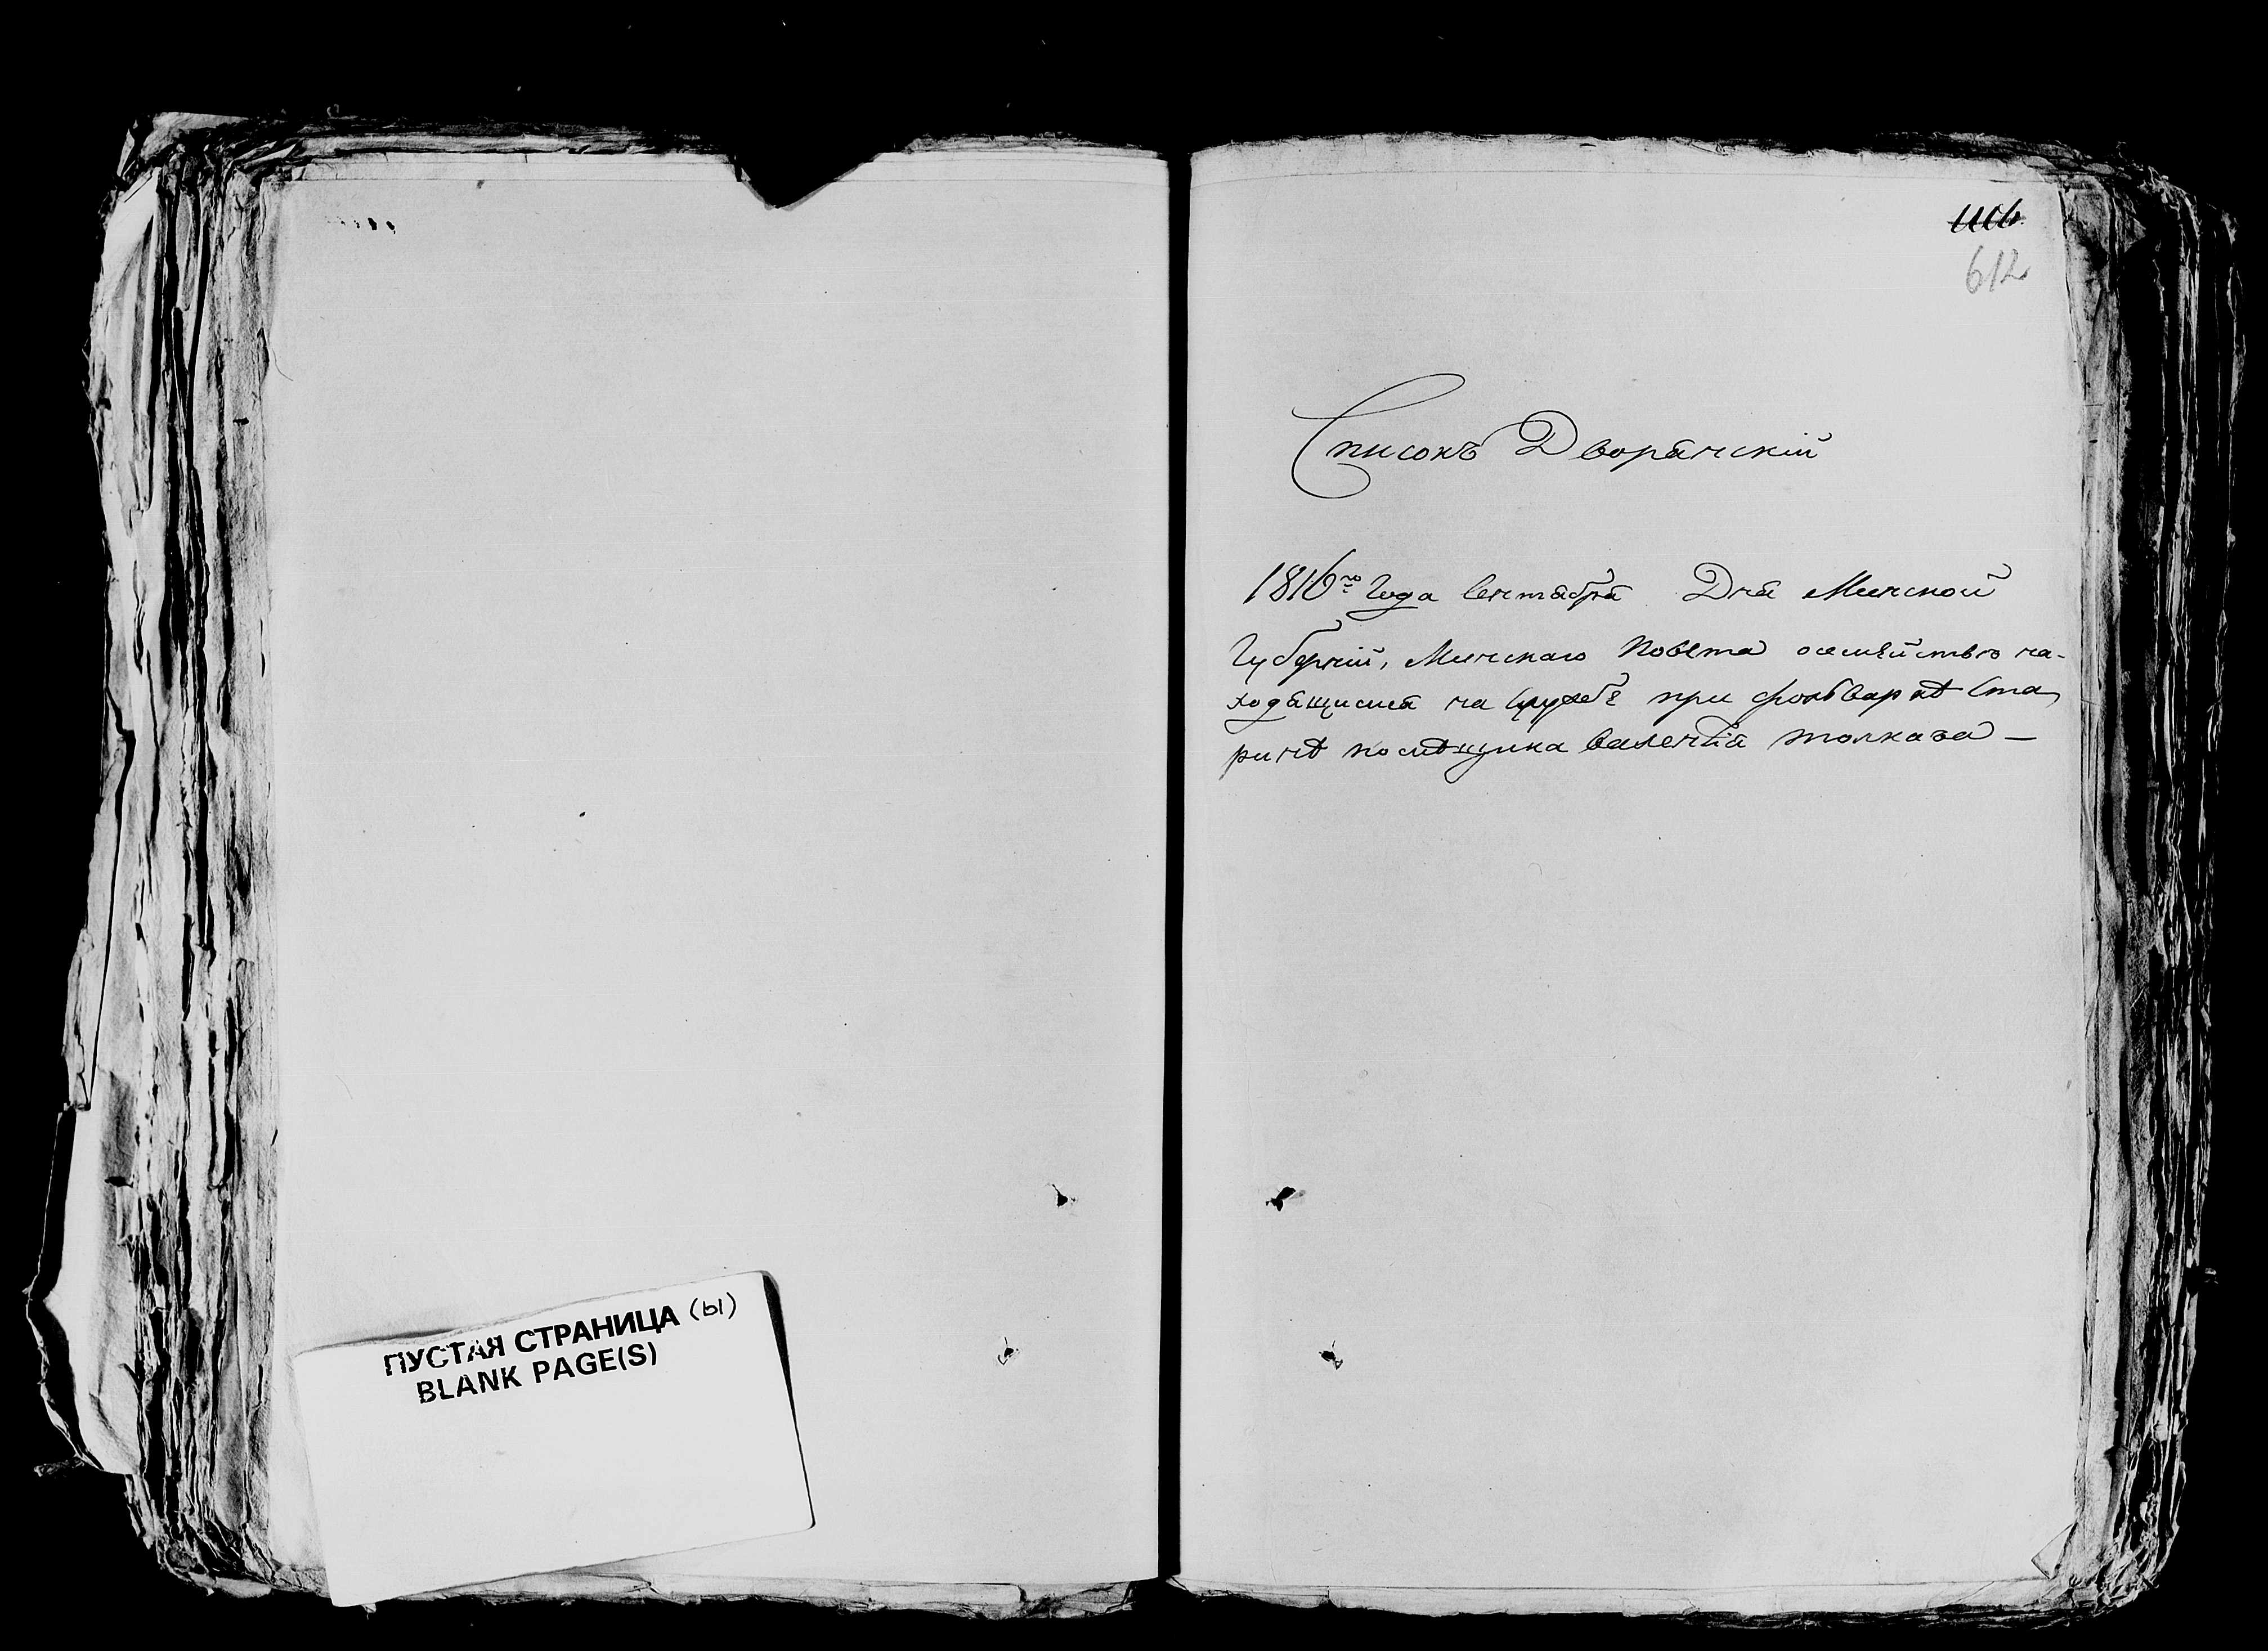 ПУСТАЯ СТРАНИЦА (ы)
BLANK PAGE(S)
612
Списокъ Дворянскій
1816го Года Сентября Дня Минской
Губерніи, Минскаго Повета осемействѣ на-
ходящисмя на службѣ при фольваркѣ Ста
ринѣ помѣщика валентія толкача —